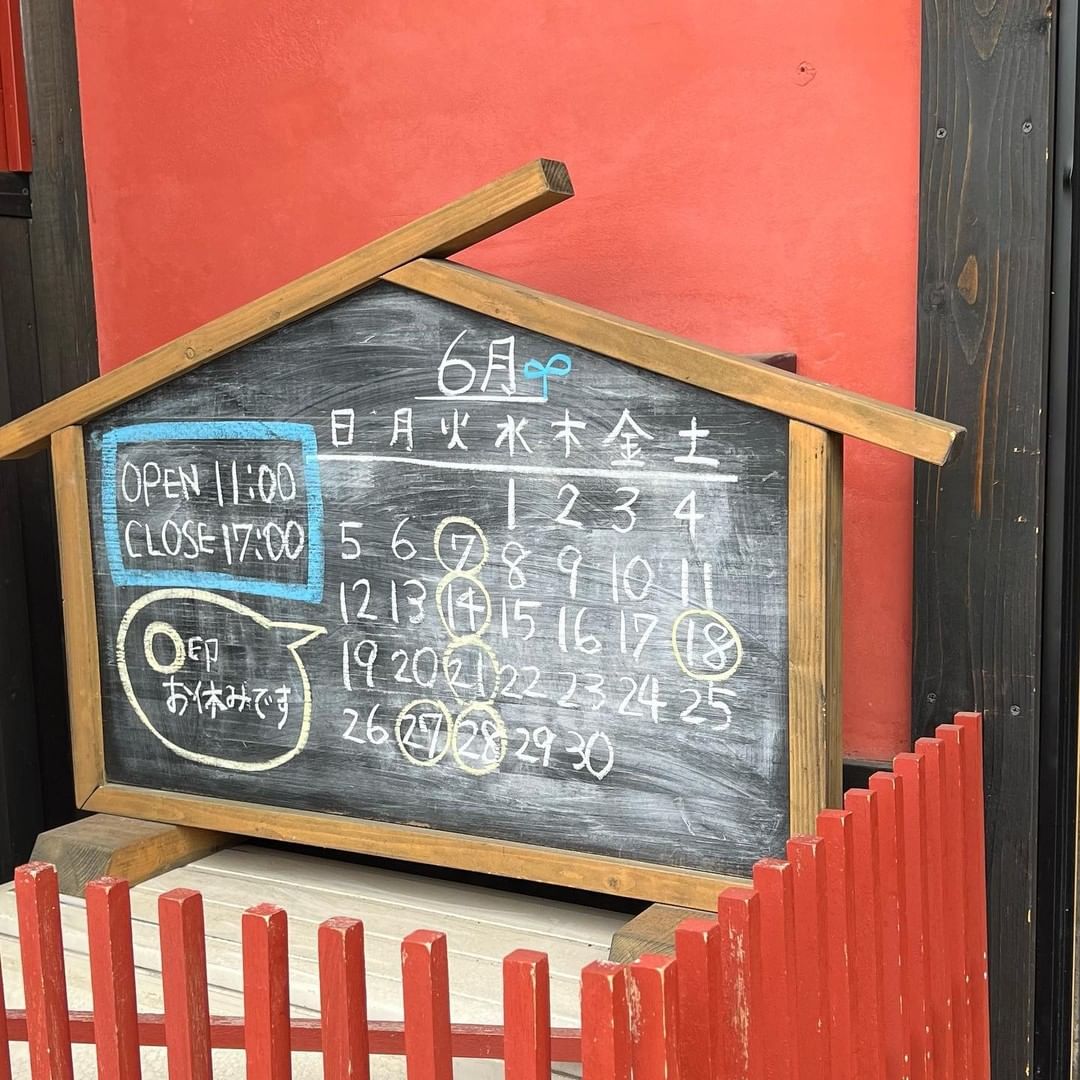 6月
日 月 火 水 木 金 土
1 2 3 4
5 6 7 8 9 10 11
12 13 14 15 16 17 18
19 20 21 22 23 24 25
26 27 28 29 30
OPEN 11:00
CLOSE 17:00
○印
お休みです